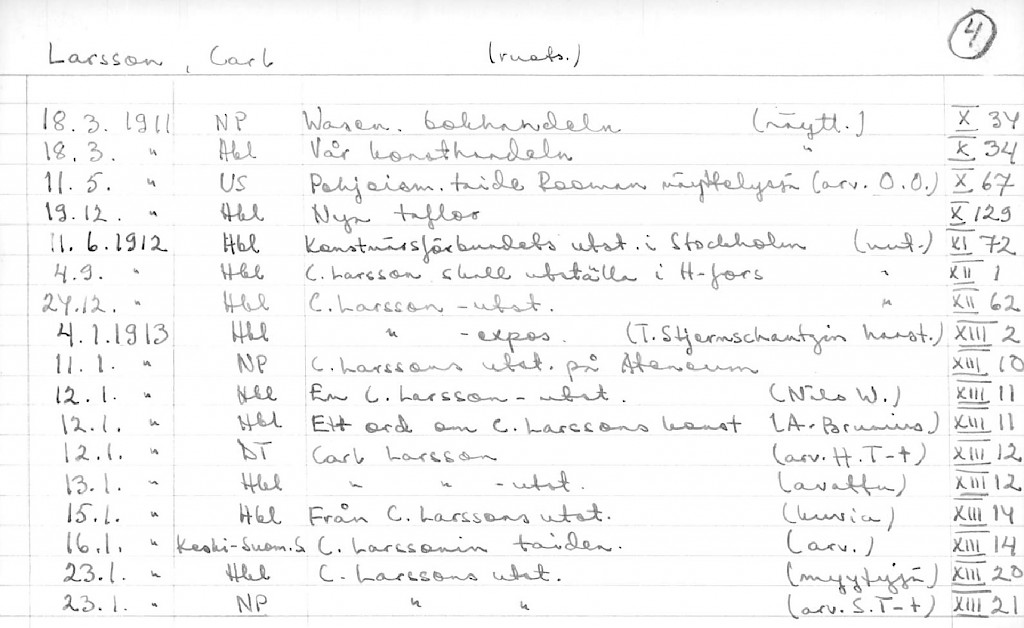 4
Larsson, Carl (ruots.)
18.3. 1911 NP Wasen. bokhandeln (näytt.) X 34
18.3. " Hbl Vår konsthandeln " X 34
11.5. " US Pohjoism. taide Rooman näyttelyssä (arv. O.O.) X 67
19.12. " Hbl Nya taflor X 129
11.6.1912 Hbl Konstnärsförbundets utst. i Stockholm (uut.) XI 72
4.9. " Hbl C. Larsson skall utställa i H-fors " XII 1
24.12. " Hbl C. Larsson -utst. " XII 62
4.1.1913 Hbl " -expos. (T. Stjernschantzin haast.) XIII 2
11.1. " NP C. Larssons utst. på Ateneum XIII 10
12.1. " Hbl En C. Larsson - utst. (Nils W.) XIII 11
12.1. " Hbl Ett ord om C. Larssons konst (A. Brunius.) XIII 11
12.1. " DT Carl Larsson (arv. H.T-t) XIII 12
13.1. " Hbl " " -utst. (avattu) XIII 12
15.1. " Hbl Från C. Larssons utst. (kuvia) XIII 14
16.1. " Keski-Suom.S C. Larssonin taiden. (arv.) XIII 14
23.1. " Hbl C. Larssons utst. (myytyjä) XIII 20
23.1. " NP " " (arv. S.T-t) XIII 21